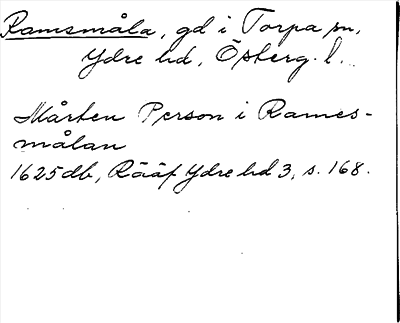 Ramsmåla, gd i Torpa sn,
Ydre hd, Österg. l.
Mårten Person i Rames-
målan
1625 db, Rääf Ydre hd 3, s. 168.